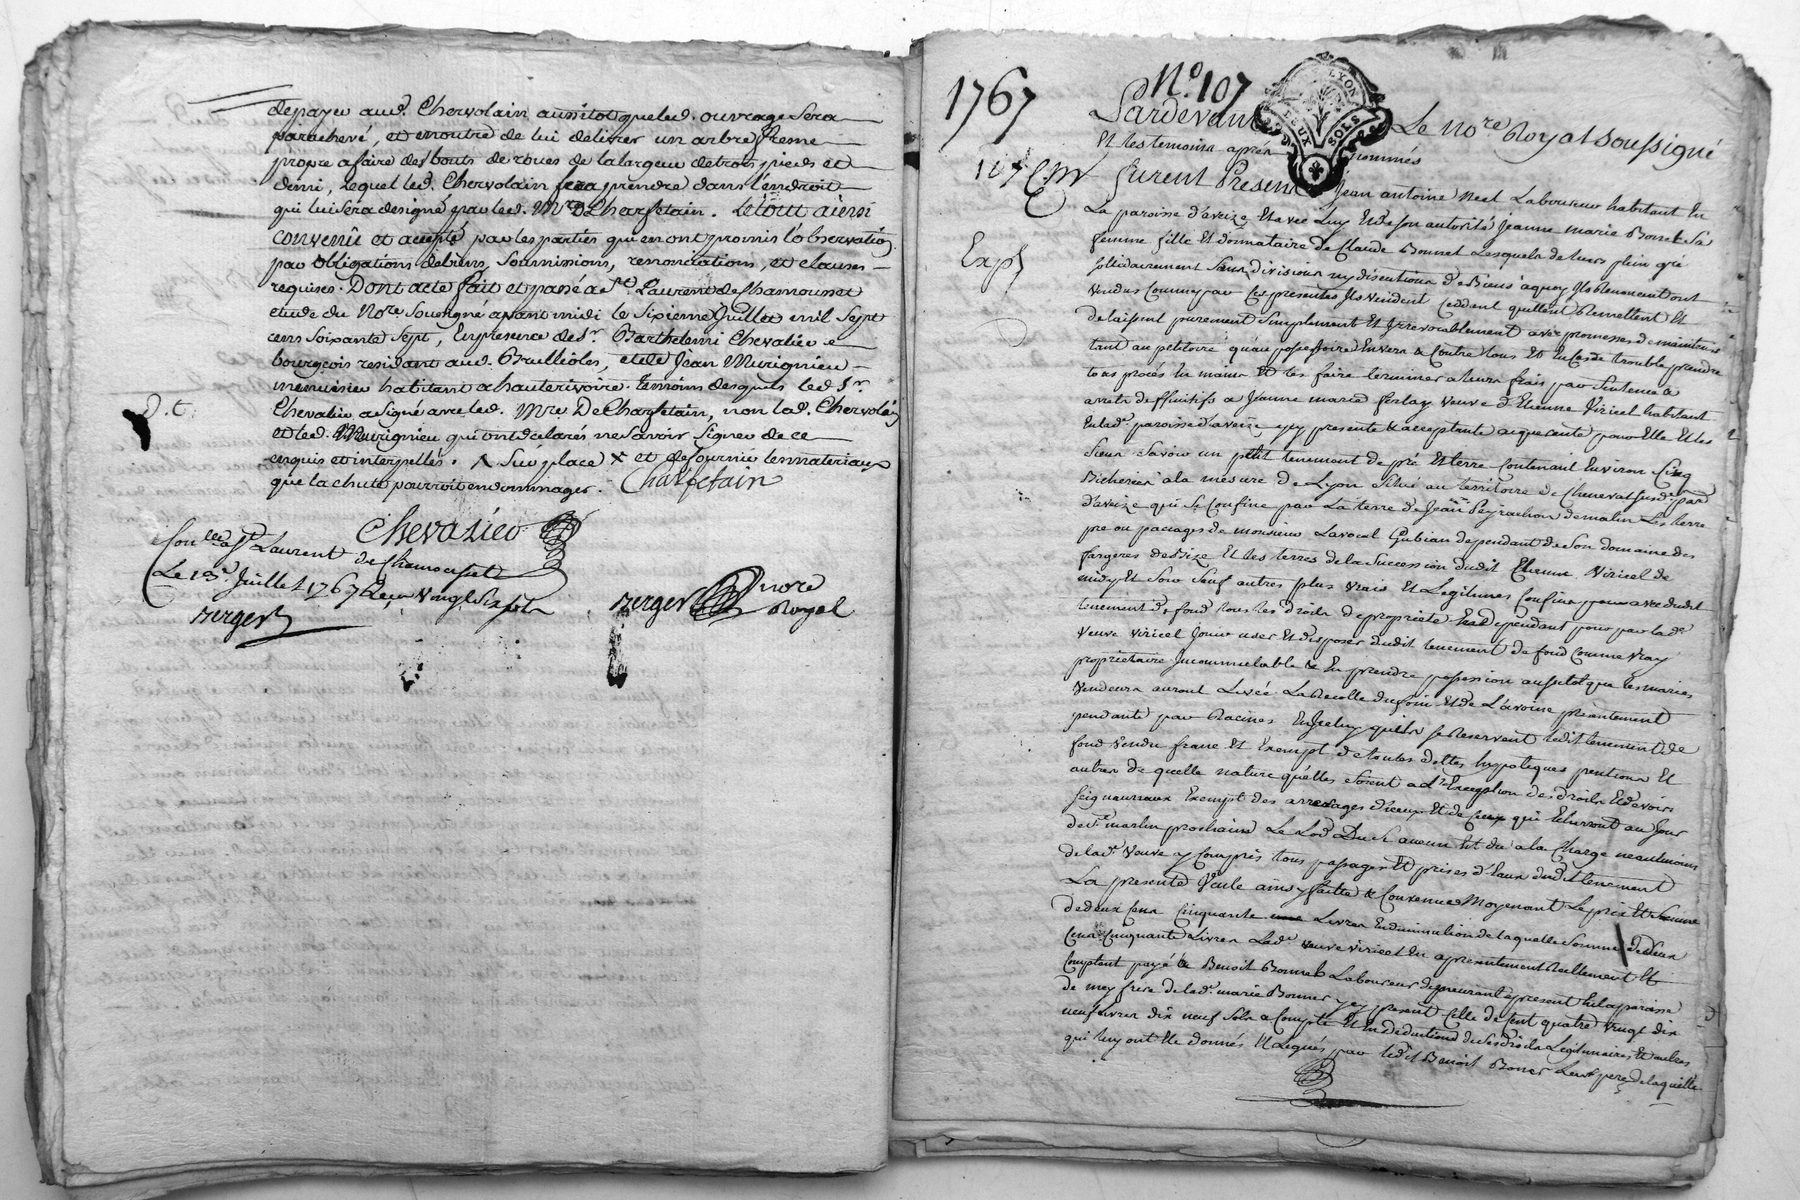 de payer aud. Chervolain aussitot que led. ouvrage sera
parachevé, et en outre de lui delivrer un arbre fresne
propre a faire des bouts de roues de la largeur de trois pieds et
demi, lequel led. Chervolain fera prendre dans l'endroit
qui lui sera designé par led. Mre De Charfetain. Le tout ainsi
convenu et accepté par les parties qui en ont promis l'observation
par obligations de biens, soumissions, renonciations, et clauses
requises. Dont acte fait et passé a St. Laurent de Chamousset
etude du Nore Soussigné avant midi le sixieme Juillet mil sept
cens soixante sept, En presence de Sr. Barthelemi Chevalier
bourgeois residant aud. Brullioles, et de Jean Murignieu
menuisier habitant a hauterivoire. temoins desquels led. Sr.
Chevalier a signé avec led. Mre De Charfetain, non lad. Chervolain
et led. Murignieu qui ont declarés ne savoir signer de ce
enquis et interpellés. Sur place X et de fournir les materiaux
que la chute pourroit endommager. Charfetain
D.t.
Chevalier
Conllé a St Laurent
de Chamousset
Le 13e. Juillet 1767 Reçu vingt six sols
Berger
Berger nore
Royal
1767
No. 107
Pardevant Le Nore Royal Soussigné
LYON
DEUX SOLS
Et les temoins après nommés
107
Exp
furent Presens Jean antoine Neel Laboureur habitant En
La paroisse d'aveize Et avec Luy Et de son autorité Jeanne marie Bonnet Sa
femme fille Et donnataire de Claude Bonnet Lesquels de leurs plein gré
sollidairement Sans division ny discution de Biens à quoy Ils Renoncent ont
vendus Comme par Ces presentes Ils vendent Ceddent quittent Remettent Et
delaissent purement Simplement Et Irrevocablement avec promesses de maintenir
tant au petitoire qu'au possessoire Envers & Contre tous Et En Cas de trouble prendre
tous procés En mains Et les faire terminer a leurs frais par Sentence &
arrets deffinitifs a Jeanne marie ferlay veuve d'Etienne Viricel habitant
En lad. paroisse d'aveize y presente & acceptante aquerente pour Elle Et les
Siens. Savoir un petit tenement de pré Et terre Contenant Environ Cinq
Bicherées à la mesure de Lyon Situé au territoire de Chenevat susd. par.
d'aveize qui Se Confine par La terre de Jean Peyrachon de matin Les terre
pré ou paccages de monsieur Lavocat Gubian dependant de Son domaine des
fargeres de Bize Et les terres de la Succession dudit Etienne Viricel de
midy Et Soir Sauf autres plus vrais Et Legitimes Confins pour avec dudit
tenement de fond tous les droits de propriété En dependant pour par lad.
veuve viricel Jouir user Et disposer dudit tenement de fond Comme vray
proprietaire Incommutable & En prendre possession aussitot que les mariés
vendeurs auront Levée La Recolte du foin Et de L'avoine presentement
pendante par Racines En Iceluy qu'ils se Reservent ledit tenement de
fond vendu franc Et Exempt de toutes dettes hypoteques pentions Et
autres de quelle nature qu'elles Soient a d'Exception des droits Et devoirs
seigneuriaux Exempt des arrerages d'iceux Et de Ceux qui Echerront au Jour
de St. martin prochain Le Lod Du Si aucun Est du a la Charge neanlmoins
de lad. veuve y Compris tous passages Et prises d'Eaux dudit tenement
La presente Vente ainsy faitte & Convenue Moyenant Le prix Et Somme
de deux Cens Cinquante Livres En diminution de laquelle Somme de deux
Cens Cinquante Livres Lad. veuve viricel En a presentement Reellement Et
Comptant payé à Benoit Bonnet Laboureur demeurant a present En la paroisse
de mey frere de lad. marie Bonnet y present Celle de Cent quatre vingt dix
neuf Livres dix neuf Sols a Compte Et En deduction de Ses droits Legitimaires Et autres
qui luy ont Eté donnés Et Legués par ledit Benoit Bonet Leur pere de laquelle